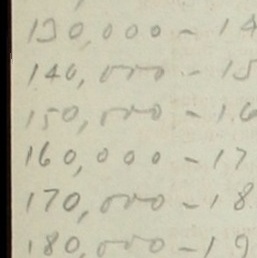 130,000 - 14
140,000 - 15
150,000 - 16
160,000 - 17
170,000 - 18
180,000 - 19